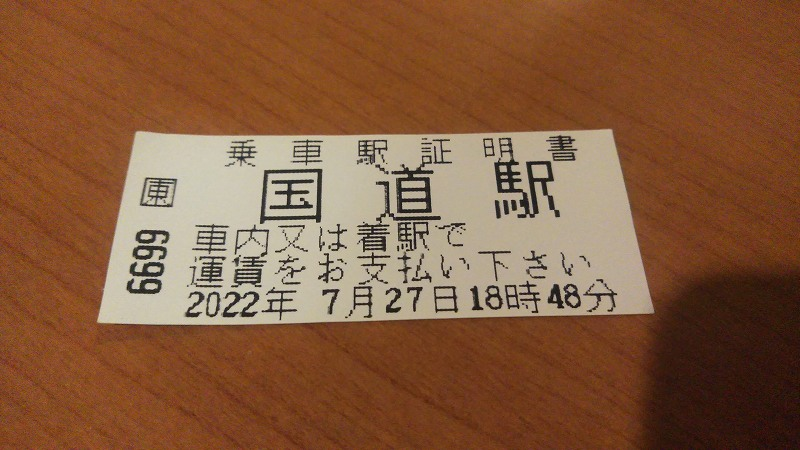 乗車駅証明書
国道駅
車内又は着駅で
運賃をお支払い下さい
2022年 7月27日18時48分
東
6699